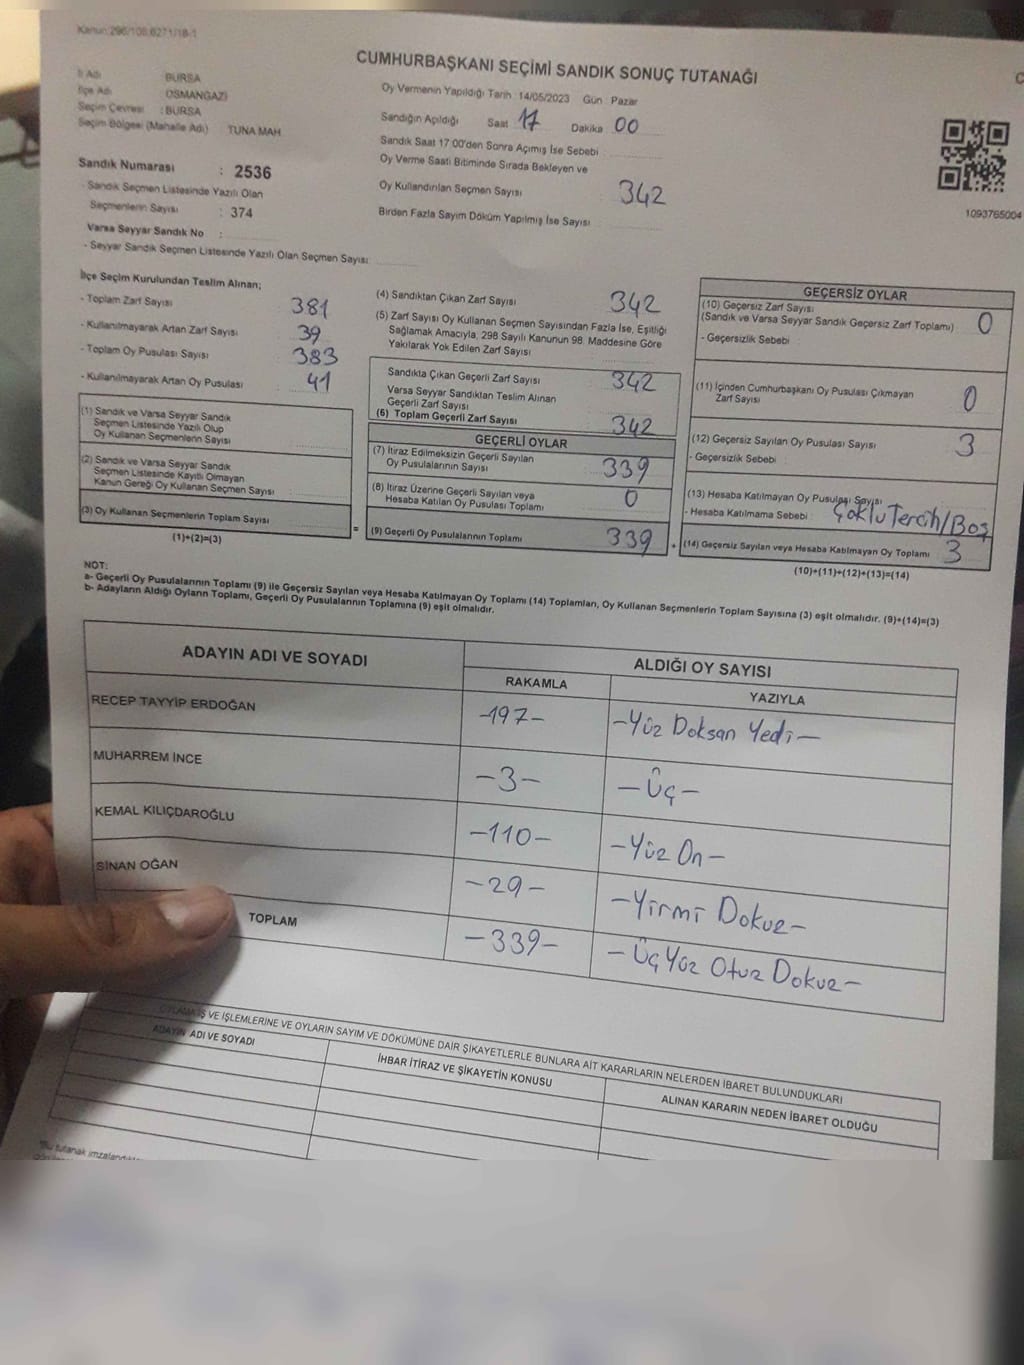 Kanun:296/108,6271/18-1
CUMHURBAŞKANI SEÇİMİ SANDIK SONUÇ TUTANAĞI
C
İl Adı BURSA
İlçe Adı OSMANGAZİ
Seçim Çevresi : BURSA
Seçim Bölgesi (Mahalle Adı) TUNA MAH
Sandık Numarası : 2536
- Sandık Seçmen Listesinde Yazılı Olan
Seçmenlerin Sayısı : 374
Varsa Seyyar Sandık No :
- Seyyar Sandık Seçmen Listesinde Yazılı Olan Seçmen Sayısı:
Oy Vermenin Yapıldığı Tarih : 14/05/2023 Gün : Pazar
Sandığın Açıldığı Saat : 17 Dakika : 00
Sandık Saat 17:00'den Sonra Açımış İse Sebebi :
Oy Verme Saati Bitiminde Sırada Bekleyen ve
Oy Kullandırılan Seçmen Sayısı 342
Birden Fazla Sayım Döküm Yapılmış İse Sayısı :
1093765004
İlçe Seçim Kurulundan Teslim Alınan;
- Toplam Zarf Sayısı 381
- Kullanılmayarak Artan Zarf Sayısı 39
- Toplam Oy Pusulası Sayısı 383
- Kullanılmayarak Artan Oy Pusulası 41
(1) Sandık ve Varsa Seyyar Sandık
Seçmen Listesinde Yazılı Olup
Oy Kullanan Seçmenlerin Sayısı
(2) Sandık ve Varsa Seyyar Sandık
Seçmen Listesinde Kayıtlı Olmayan
Kanun Gereği Oy Kullanan Seçmen Sayısı
(3) Oy Kullanan Seçmenlerin Toplam Sayısı
(1)+(2)=(3)
=
(4) Sandıktan Çıkan Zarf Sayısı 342
(5) Zarf Sayısı Oy Kullanan Seçmen Sayısından Fazla İse, Eşitliği
Sağlamak Amacıyla, 298 Sayılı Kanunun 98. Maddesine Göre
Yakılarak Yok Edilen Zarf Sayısı
Sandıkta Çıkan Geçerli Zarf Sayısı 342
Varsa Seyyar Sandıktan Teslim Alınan
Geçerli Zarf Sayısı
(6) Toplam Geçerli Zarf Sayısı 342
GEÇERLİ OYLAR
(7) İtiraz Edilmeksizin Geçerli Sayılan
Oy Pusulalarının Sayısı 339
(8) İtiraz Üzerine Geçerli Sayılan veya
Hesaba Katılan Oy Pusulası Toplamı 0
(9) Geçerli Oy Pusulalarının Toplamı 339
+
GEÇERSİZ OYLAR
(10) Geçersiz Zarf Sayısı
(Sandık ve Varsa Seyyar Sandık Geçersiz Zarf Toplamı) 0
- Geçersizlik Sebebi :
(11) İçinden Cumhurbaşkanı Oy Pusulası Çıkmayan
Zarf Sayısı 0
(12) Geçersiz Sayılan Oy Pusulası Sayısı 3
- Geçersizlik Sebebi :
(13) Hesaba Katılmayan Oy Pusulası Sayısı
- Hesaba Katılmama Sebebi : Çoklu Tercih/Boş
(14) Geçersiz Sayılan veya Hesaba Katılmayan Oy Toplamı 3
(10)+(11)+(12)+(13)=(14)
NOT:
a- Geçerli Oy Pusulalarının Toplamı (9) ile Geçersiz Sayılan veya Hesaba Katılmayan Oy Toplamı (14) Toplamları, Oy Kullanan Seçmenlerin Toplam Sayısına (3) eşit olmalıdır. (9)+(14)=(3)
b- Adayların Aldığı Oyların Toplamı, Geçerli Oy Pusulalarının Toplamına (9) eşit olmalıdır.
ADAYIN ADI VE SOYADI ALDIĞI OY SAYISI
RAKAMLA YAZIYLA
RECEP TAYYİP ERDOĞAN -197- -Yüz Doksan Yedi-
MUHARREM İNCE -3- -Üç-
KEMAL KILIÇDAROĞLU -110- -Yüz On-
SİNAN OĞAN -29- -Yirmi Dokuz-
TOPLAM -339- -Üç Yüz Otuz Dokuz-
OYLAMA İŞ VE İŞLEMLERİNE VE OYLARIN SAYIM VE DÖKÜMÜNE DAİR ŞİKAYETLERLE BUNLARA AİT KARARLARIN NELERDEN İBARET BULUNDUKLARI
ADAYIN ADI VE SOYADI İHBAR İTİRAZ VE ŞİKAYETİN KONUSU ALINAN KARARIN NEDEN İBARET OLDUĞU
*Bu tutanak